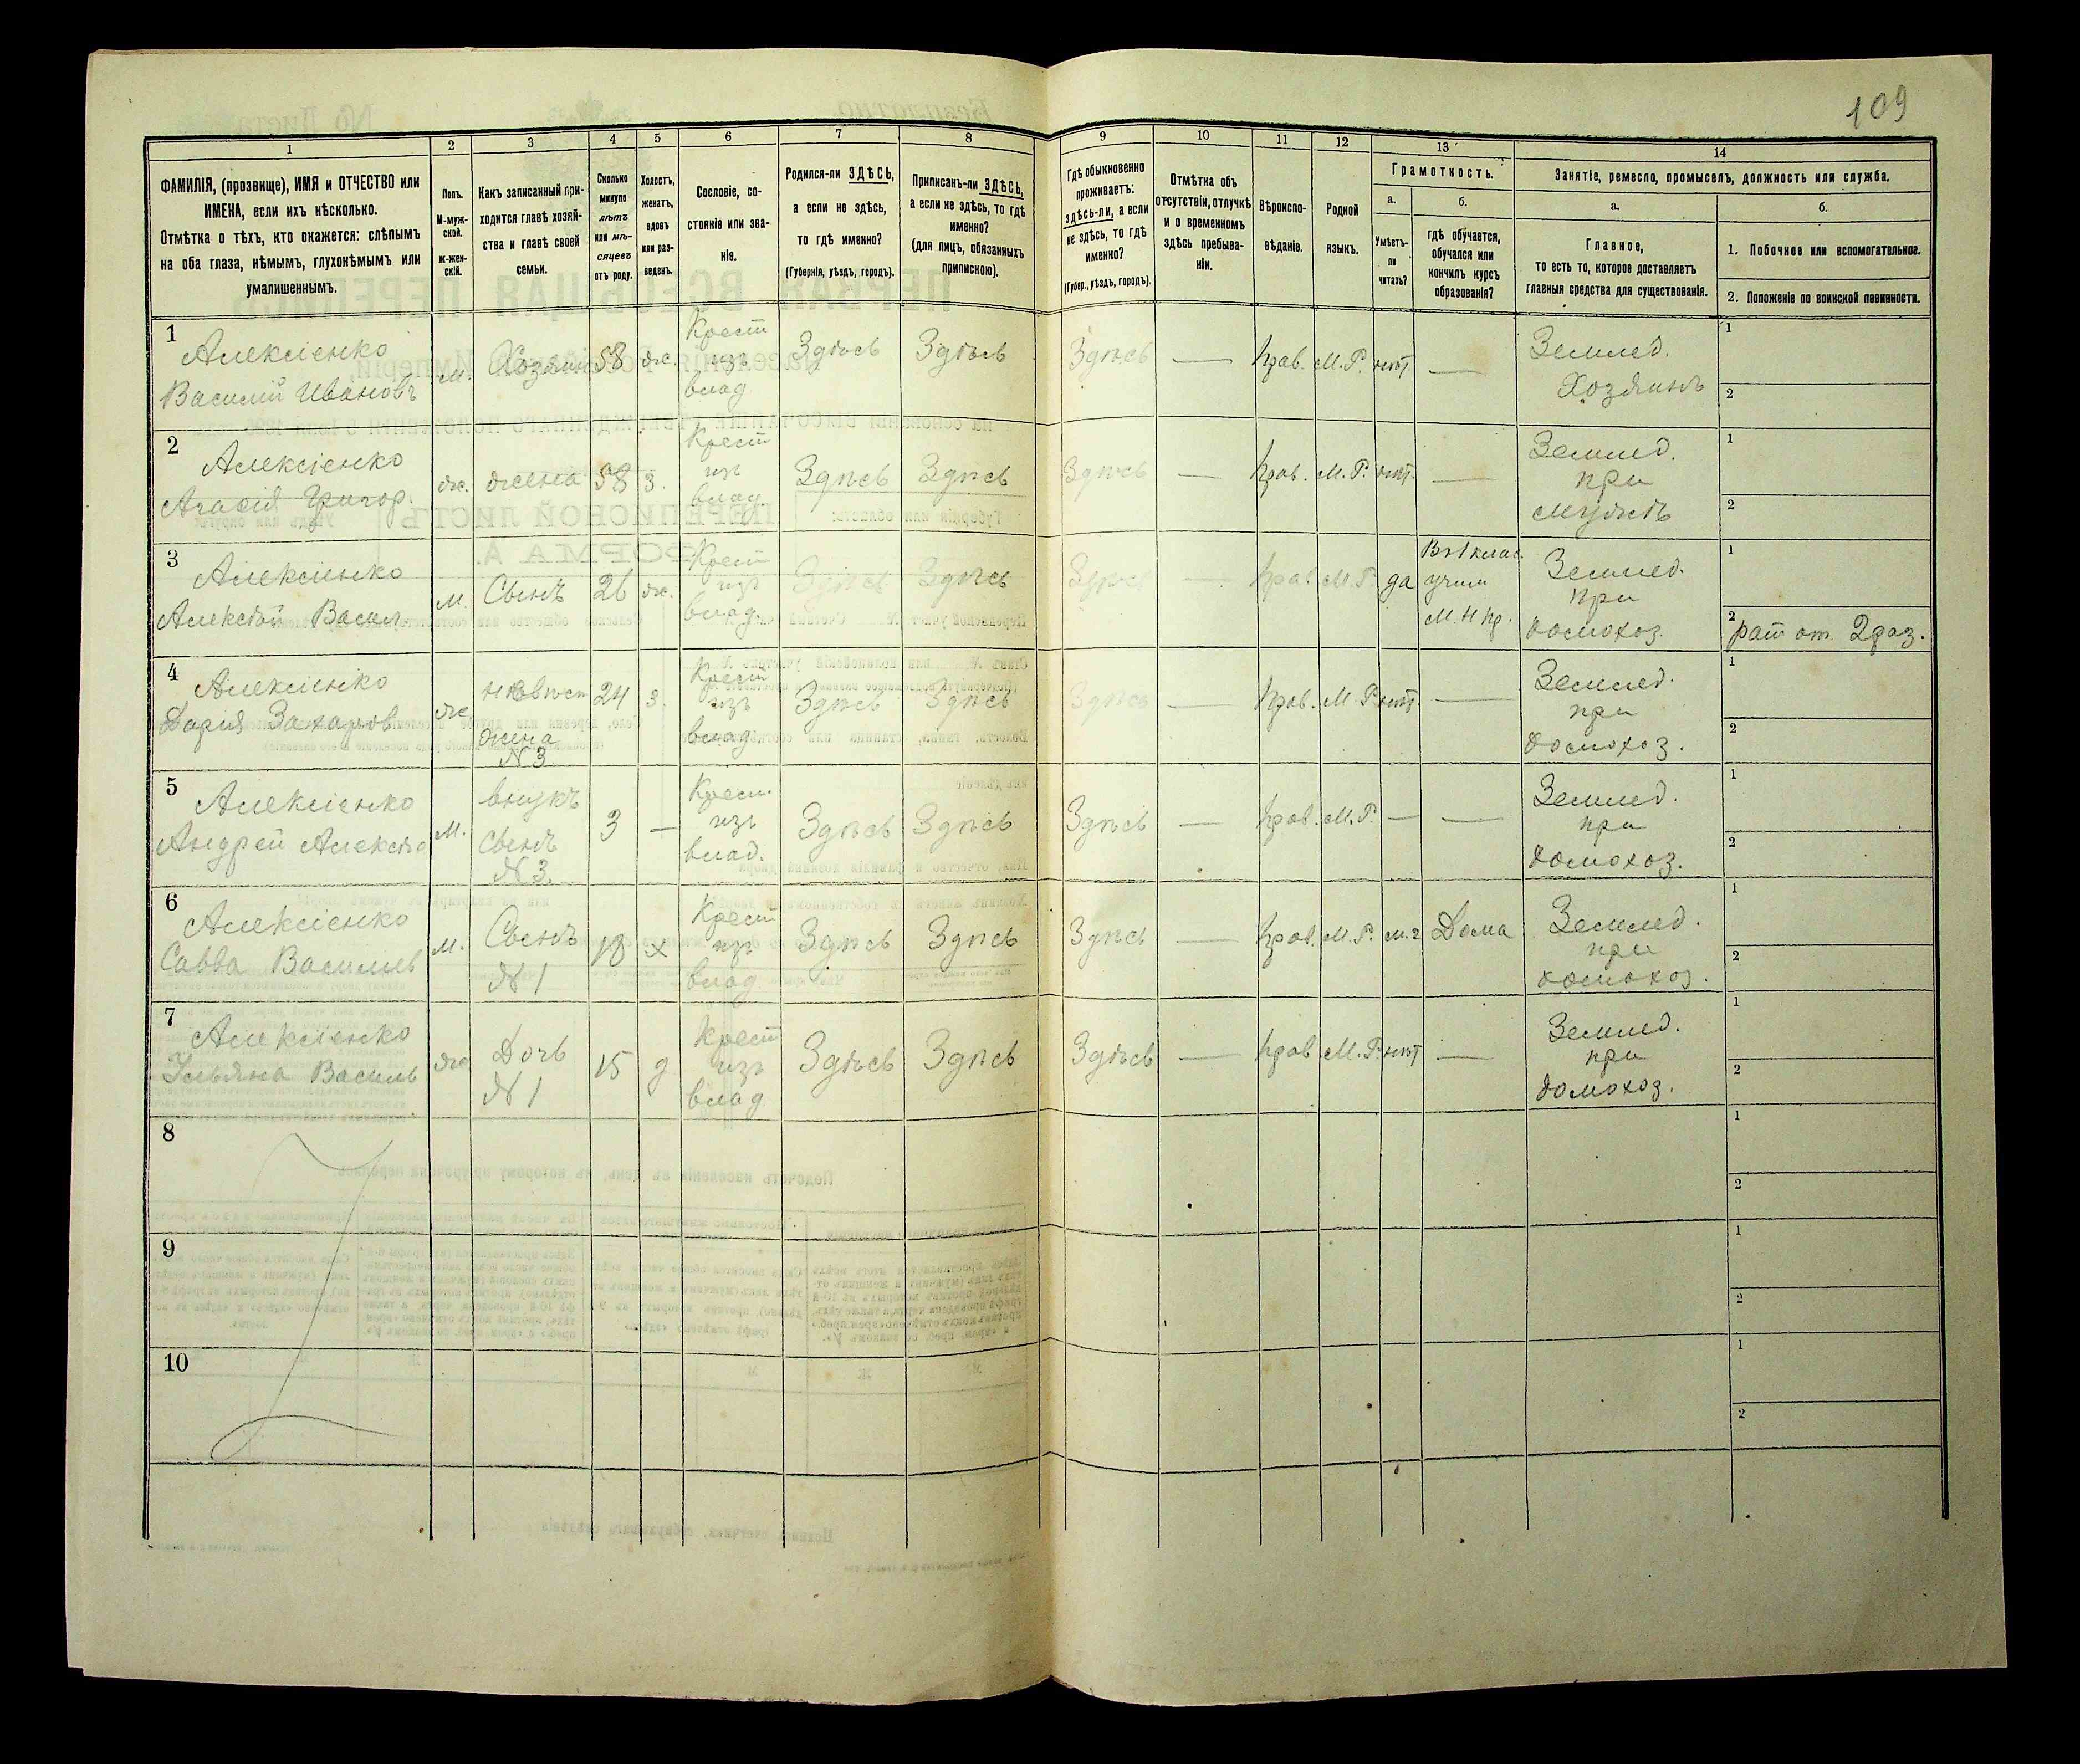 109
1
2
3
4
5
6
7
8
9
10
11
12
13
14
ФАМИЛІЯ, (прозвище), ИМЯ и ОТЧЕСТВО или
ИМЕНА, если ихъ нѣсколько.
Отмѣтка о тѣхъ, кто окажется: слѣпымъ
на оба глаза, нѣмымъ, глухонѣмымъ или
умалишеннымъ.
Полъ.
М-муж-
ской.
Ж-жен-
скій.
Какъ записанный при-
ходится главѣ хозяй-
ства и главѣ своей
семьи.
Сколько
минуло
лѣтъ
или мѣ-
сяцевъ
отъ роду.
Холостъ,
женатъ,
вдовъ
или раз-
веденъ.
Сословіе, со-
стояніе или зва-
ніе.
Родился-ли ЗДѢСЬ,
а если не здѣсь,
то гдѣ именно?
(Губернія, уѣздъ, городъ).
Приписанъ-ли ЗДѢСЬ,
а если не здѣсь, то гдѣ
именно?
(для лицъ, обязанныхъ
припискою).
Гдѣ обыкновенно
проживаетъ:
здѣсь-ли, а если
не здѣсь, то гдѣ
именно?
(Губер., уѣздъ, городъ).
Отмѣтка объ
отсутствіи, отлучкѣ
и о временномъ
здѣсь пребыва-
ніи.
Вѣроиспо-
вѣданіе.
Родной
языкъ.
Грамотность.
а.
Умѣетъ-
ли
читать?
б.
гдѣ обучается,
обучался или
кончилъ курсъ
образованія?
Занятіе, ремесло, промыселъ, должность или служба.
а.
Главное,
то есть то, которое доставляетъ
главныя средства для существованія.
б.
1. Побочное или вспомогательное.
2. Положеніе по воинской повинности.
1
Алексіенко
Василій Ивановъ
м. Хозяин 58 ж.
Крест
изъ
влад
Здѣсь Здѣсь Здѣсь — прав. М.Р. нѣт —
Землед.
Хозяинъ
1
2
2
Алексіенко
Агафія Григор.
ж. жена 58 з.
Крест
изъ
влад
Здѣсь Здѣсь Здѣсь — прав. М.Р. нѣт. —
Землед.
при
мужѣ
1
2
3
Алексіенко
Алексѣй Васил.
м. Сынъ 26 ж.
Крест
изъ
влад.
Здѣсь Здѣсь Здѣсь — прав М.Р. да
Въ 1 клас.
учил
М. Н пр.
Землед.
при
домохоз.
1
2 рат от. 2 раз.
4
Алексіенко
Дарія Захаров
ж
невѣст
жена
N 3
24 з.
Крест
изъ
влад
Здѣсь Здѣсь Здѣсь — прав. М.Р. нѣт —
Землед.
при
домохоз.
1
2
5
Алексіенко
Андрей Алексѣв
м.
внукъ
сынъ
N 3.
3 —
Крест.
изъ
влад.
Здѣсь Здѣсь Здѣсь — прав. М.Р. — —
Землед.
при
домохоз.
1
2
6
Алексіенко
Савва Васильев
м.
Сынъ
N 1
18 х
Крест
изъ
влад
Здѣсь Здѣсь Здѣсь — прав. М.Р. Дома
Землед.
при
домохоз.
1
2
7
Алексіенко
Ульяна Василь
ж
Дочь
N 1
15 д
Крест
изъ
влад
Здѣсь Здѣсь Здѣсь — прав М.Р. нѣт —
Землед.
при
домохоз.
1
2
8
1
2
9
1
2
10
1
2